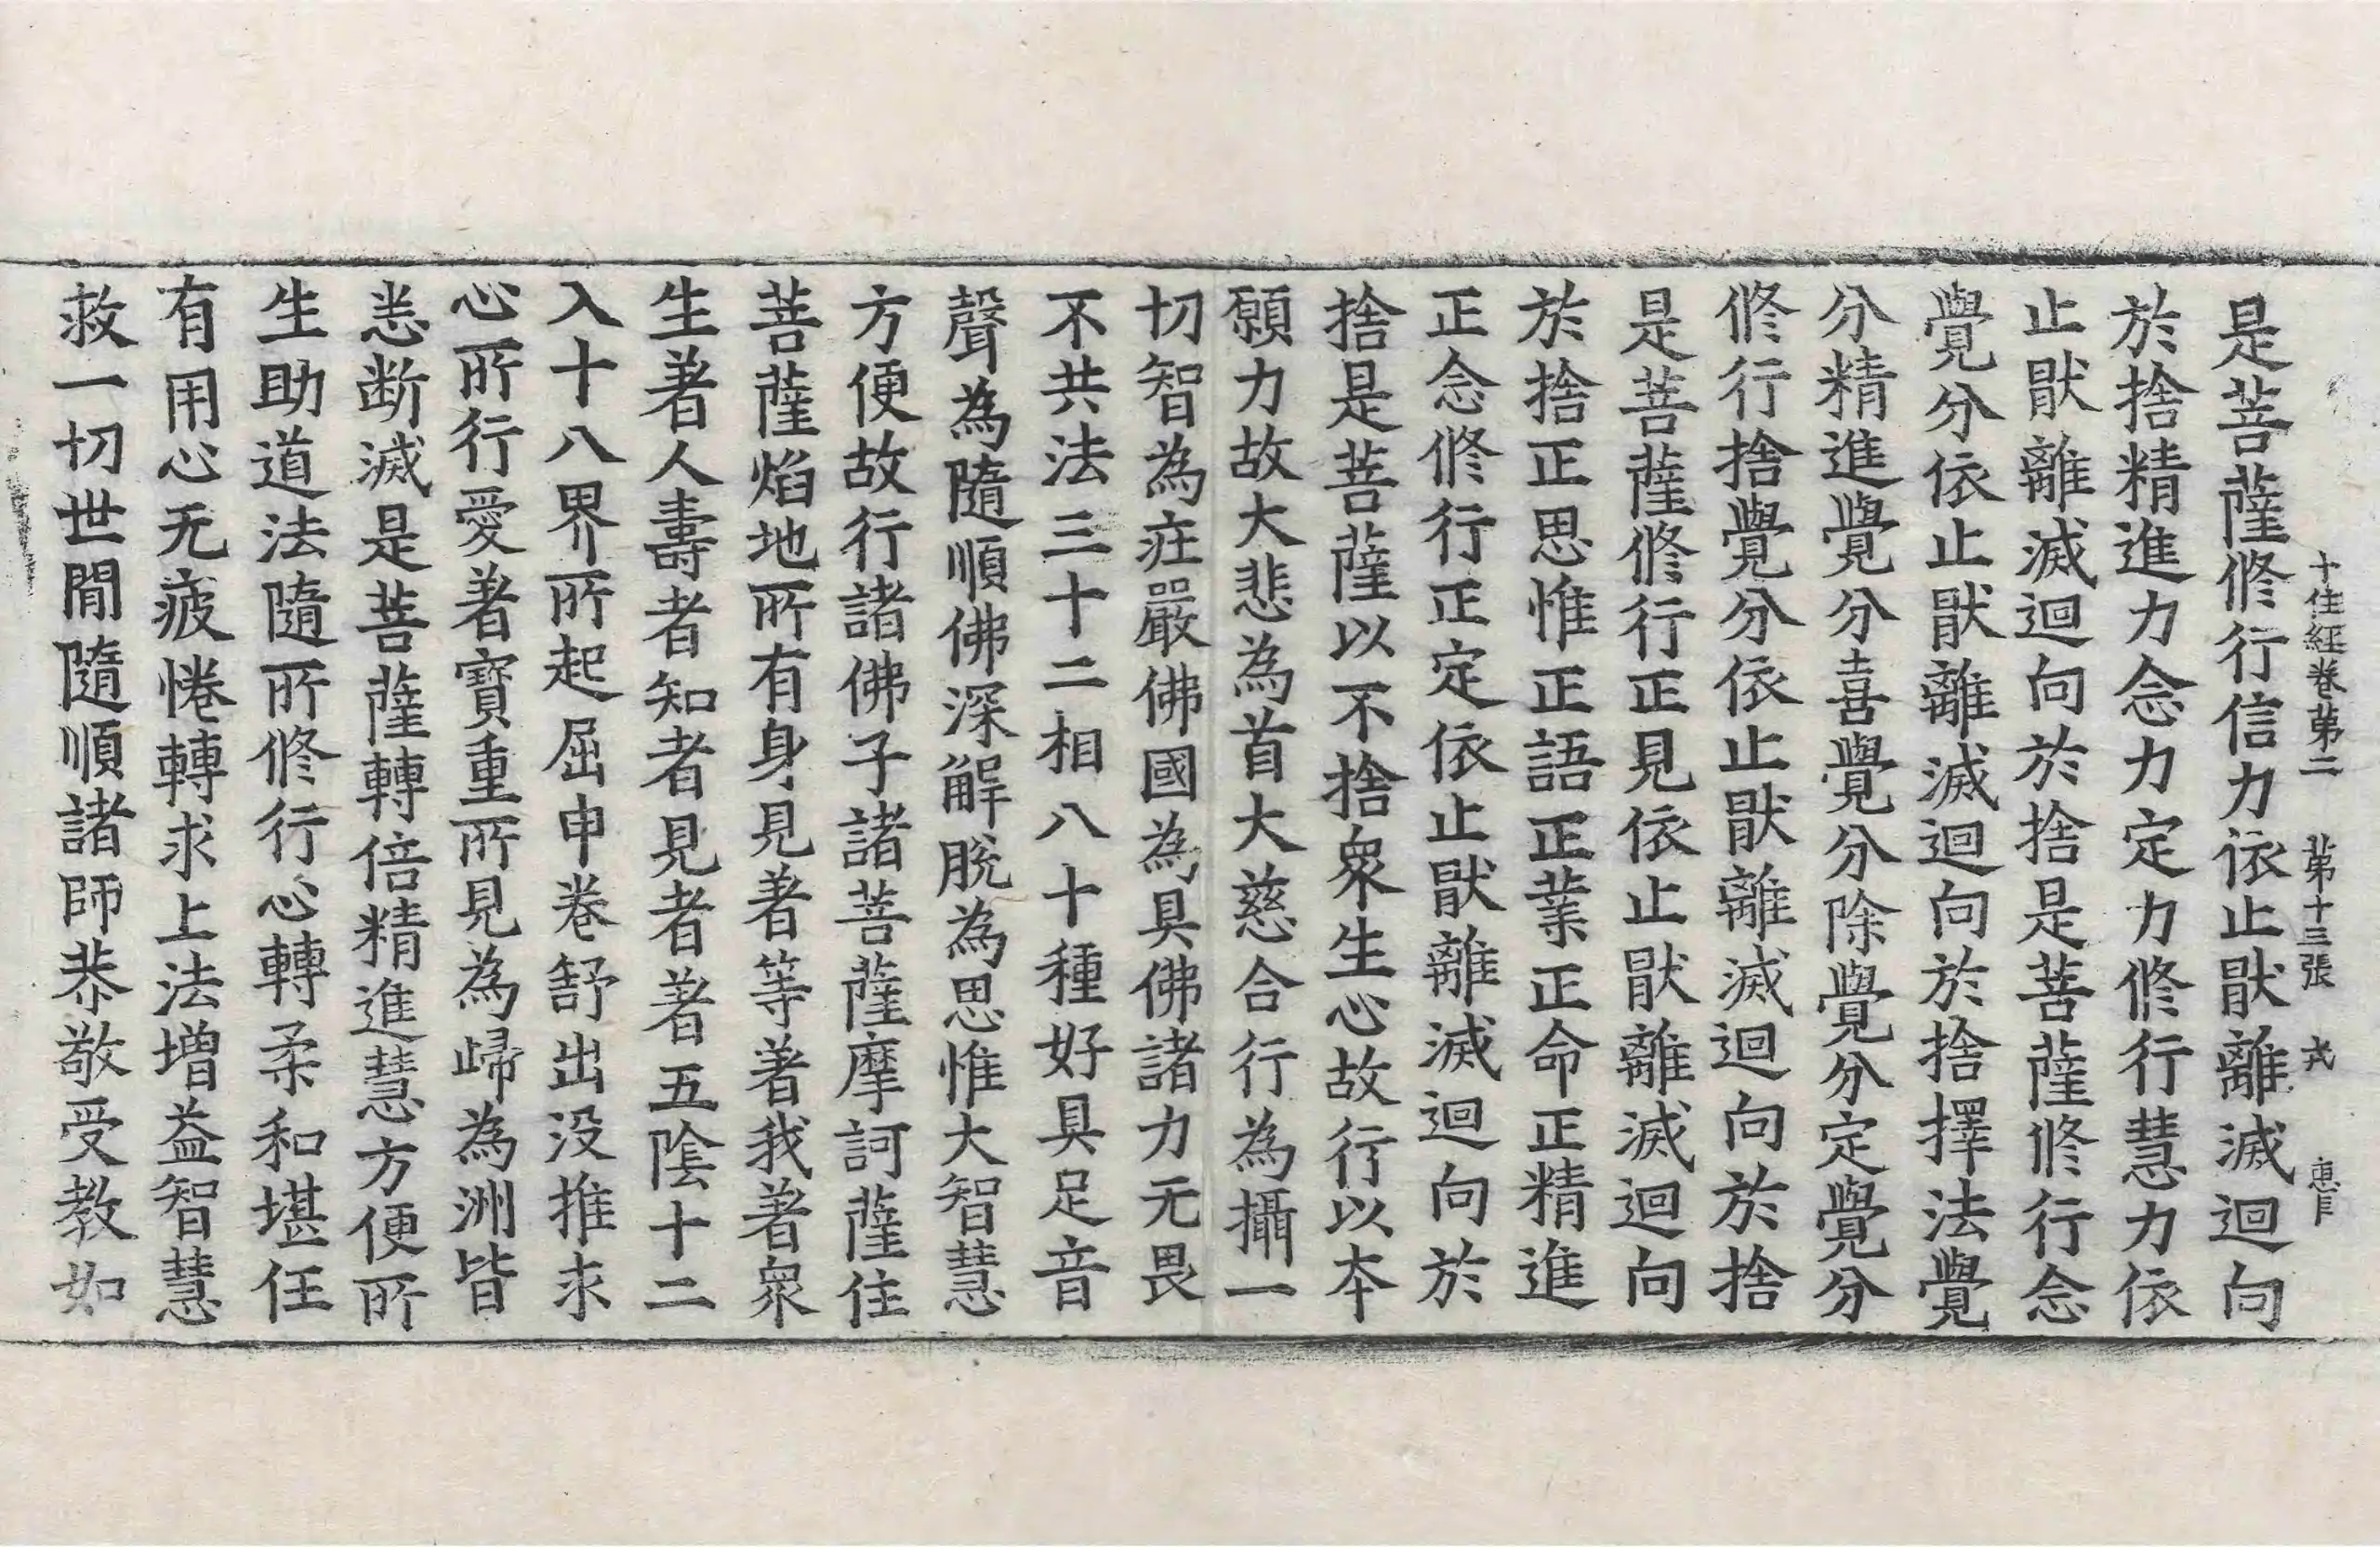 十住經卷第二 第十三張 戎 惠臣
是菩薩修行信力依止猒離滅迴向
於捨精進力念力定力修行慧力依
止猒離滅迴向於捨是菩薩修行念
覺分依止猒離滅迴向於捨擇法覺
分精進覺分喜覺分除覺分定覺分
修行捨覺分依止猒離滅迴向於捨
是菩薩修行正見依止猒離滅迴向
於捨正思惟正語正業正命正精進
正念修行正定依止猒離滅迴向於
捨是菩薩以不捨衆生心故行以本
願力故大悲為首大慈合行為攝一
切智為莊嚴佛國為具佛諸力无畏
不共法三十二相八十種好具足音
聲為隨順佛深解脫為思惟大智慧
方便故行諸佛子諸菩薩摩訶薩住
菩薩焰地所有身見著等著我著衆
生著人壽者知者見者著五陰十二
入十八界所起屈申卷舒出没推求
心所行愛著寶重所見為歸為洲皆
悉断滅是菩薩轉倍精進慧方便所
生助道法隨所修行心轉柔和堪任
有用心无疲惓轉求上法增益智慧
救一切世閒隨順諸師恭敬受教如